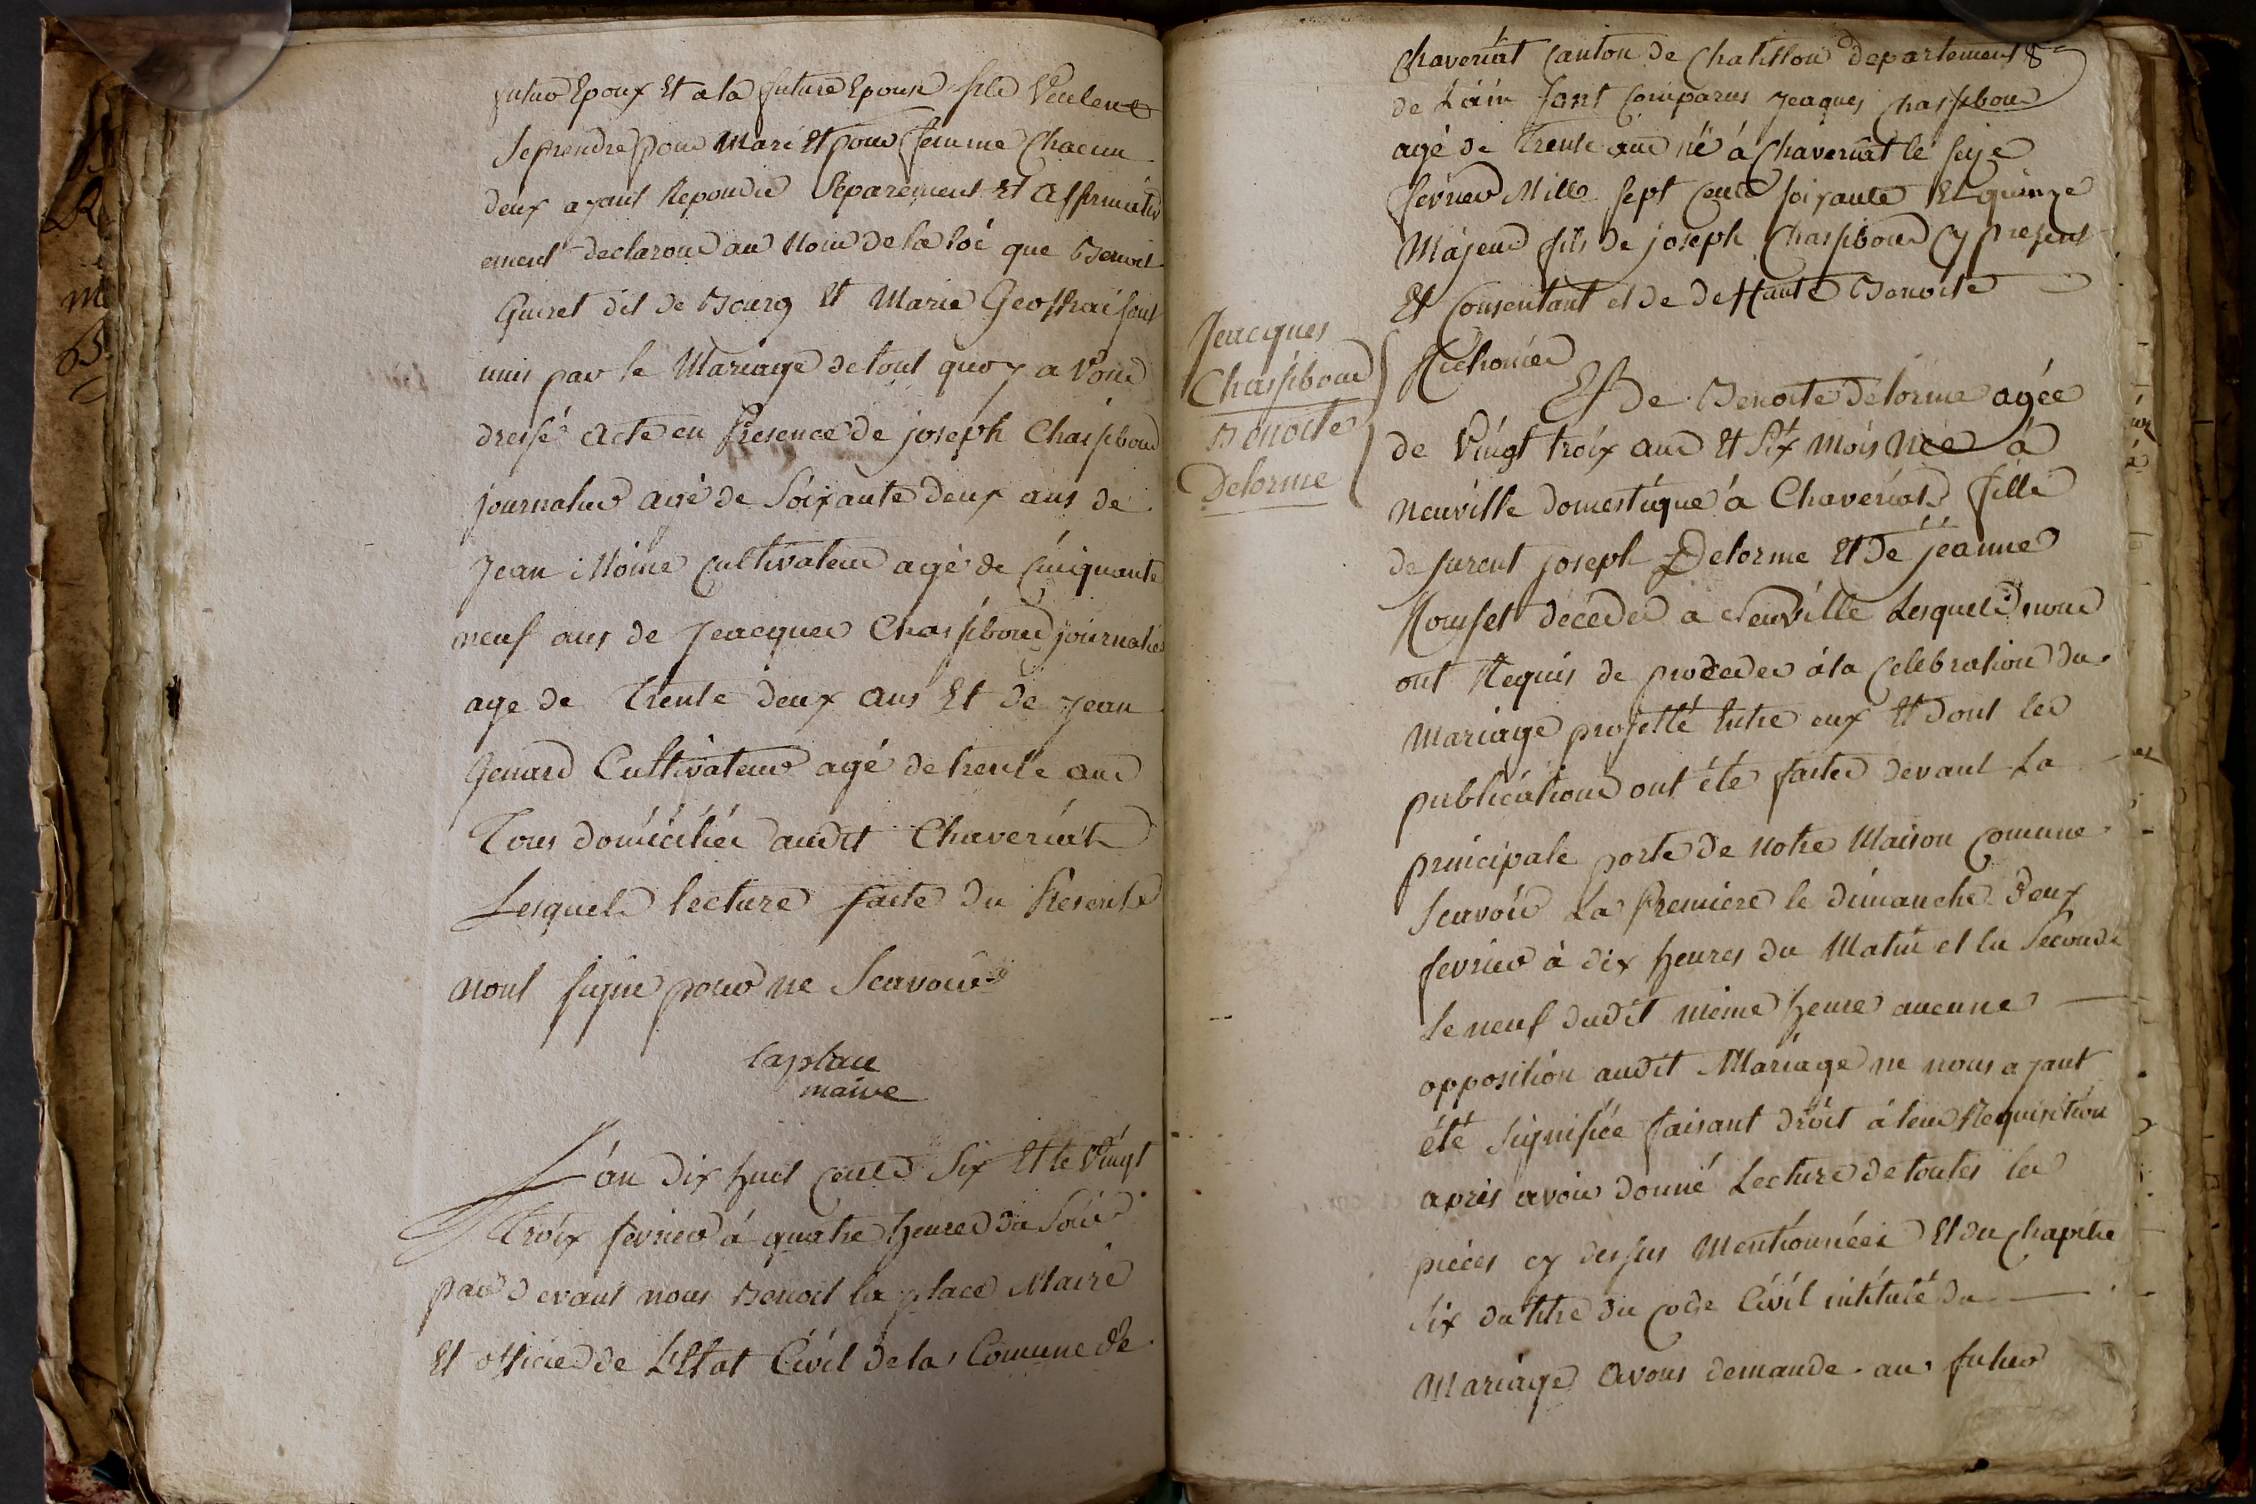 futur Epoux Et a la future Epouse sils veulent
Se prendre pour Mari Et pour femme Chacun
deux ayant Repondu Séparément Et affirmativ
ement declarons au Nom de la loi que Benoit
Guiret dit de Bourg Et Marie Geoffrai sont
unis par le Mariage de tout quoy a vons
dressé acte en Presence de joseph Chassibout
journalier agé de Soixante deux ans de
Jean Moine Cultivateur agé de Cinquante
neuf ans de Jeacques Chassiboud journalier
age de trente deux ans Et de Jean
Genard Cultivateur agé de trente ans
Tous domiciliés audit Chaveriat
Lesquels lecture faite du Present
nont signe pour ne Scavoir
laplace
maire
L'an dix huit cents Six Et le Vingt
trois fevrier à quatre heures du Soir
par devant nous Benoit la place Maire
Et officier de L'Etat Civil de la Comune de
Jeacques
Chassiboud
Benoite
Delorme
Chaveriat Canton de Chatillon departement
de Lain sont Comparus Jeaques Chassiboud
agé de trente ans né à Chaveriat le seize
fevrier Mille sept cents soixante Et quinze
Majeur fils de joseph Chassiboud Cy present
Et Consentant et de deffunte Benoite
Richonier
Et De Benoite Delorme agée
de Vingt troix ans Et Six mois née à
Neuville domestique à Chaveriat fille
de furent joseph Delorme Et De jéanne
décédés a Neuville Lesquels nous
ont Requis de proceder à la Celebration du
Mariage projetté Entre eux Et dont les
publications ont été faites devant La
principale porte de Notre Maison Comune
Scavoir La Premiere le dimanche deux
fevrier à dix heures du Matin et la Seconde
Le neuf dudit même heure aucune
opposition audit Mariage ne nous ayant
été Signifiée faisant droit à leur Requisition
après avoir donné Lecture de toutes les
pièces cy dessus Mentionnées Et du chapitre
Six du titre du Code Civil intitulé du
Mariage avons demande au futur